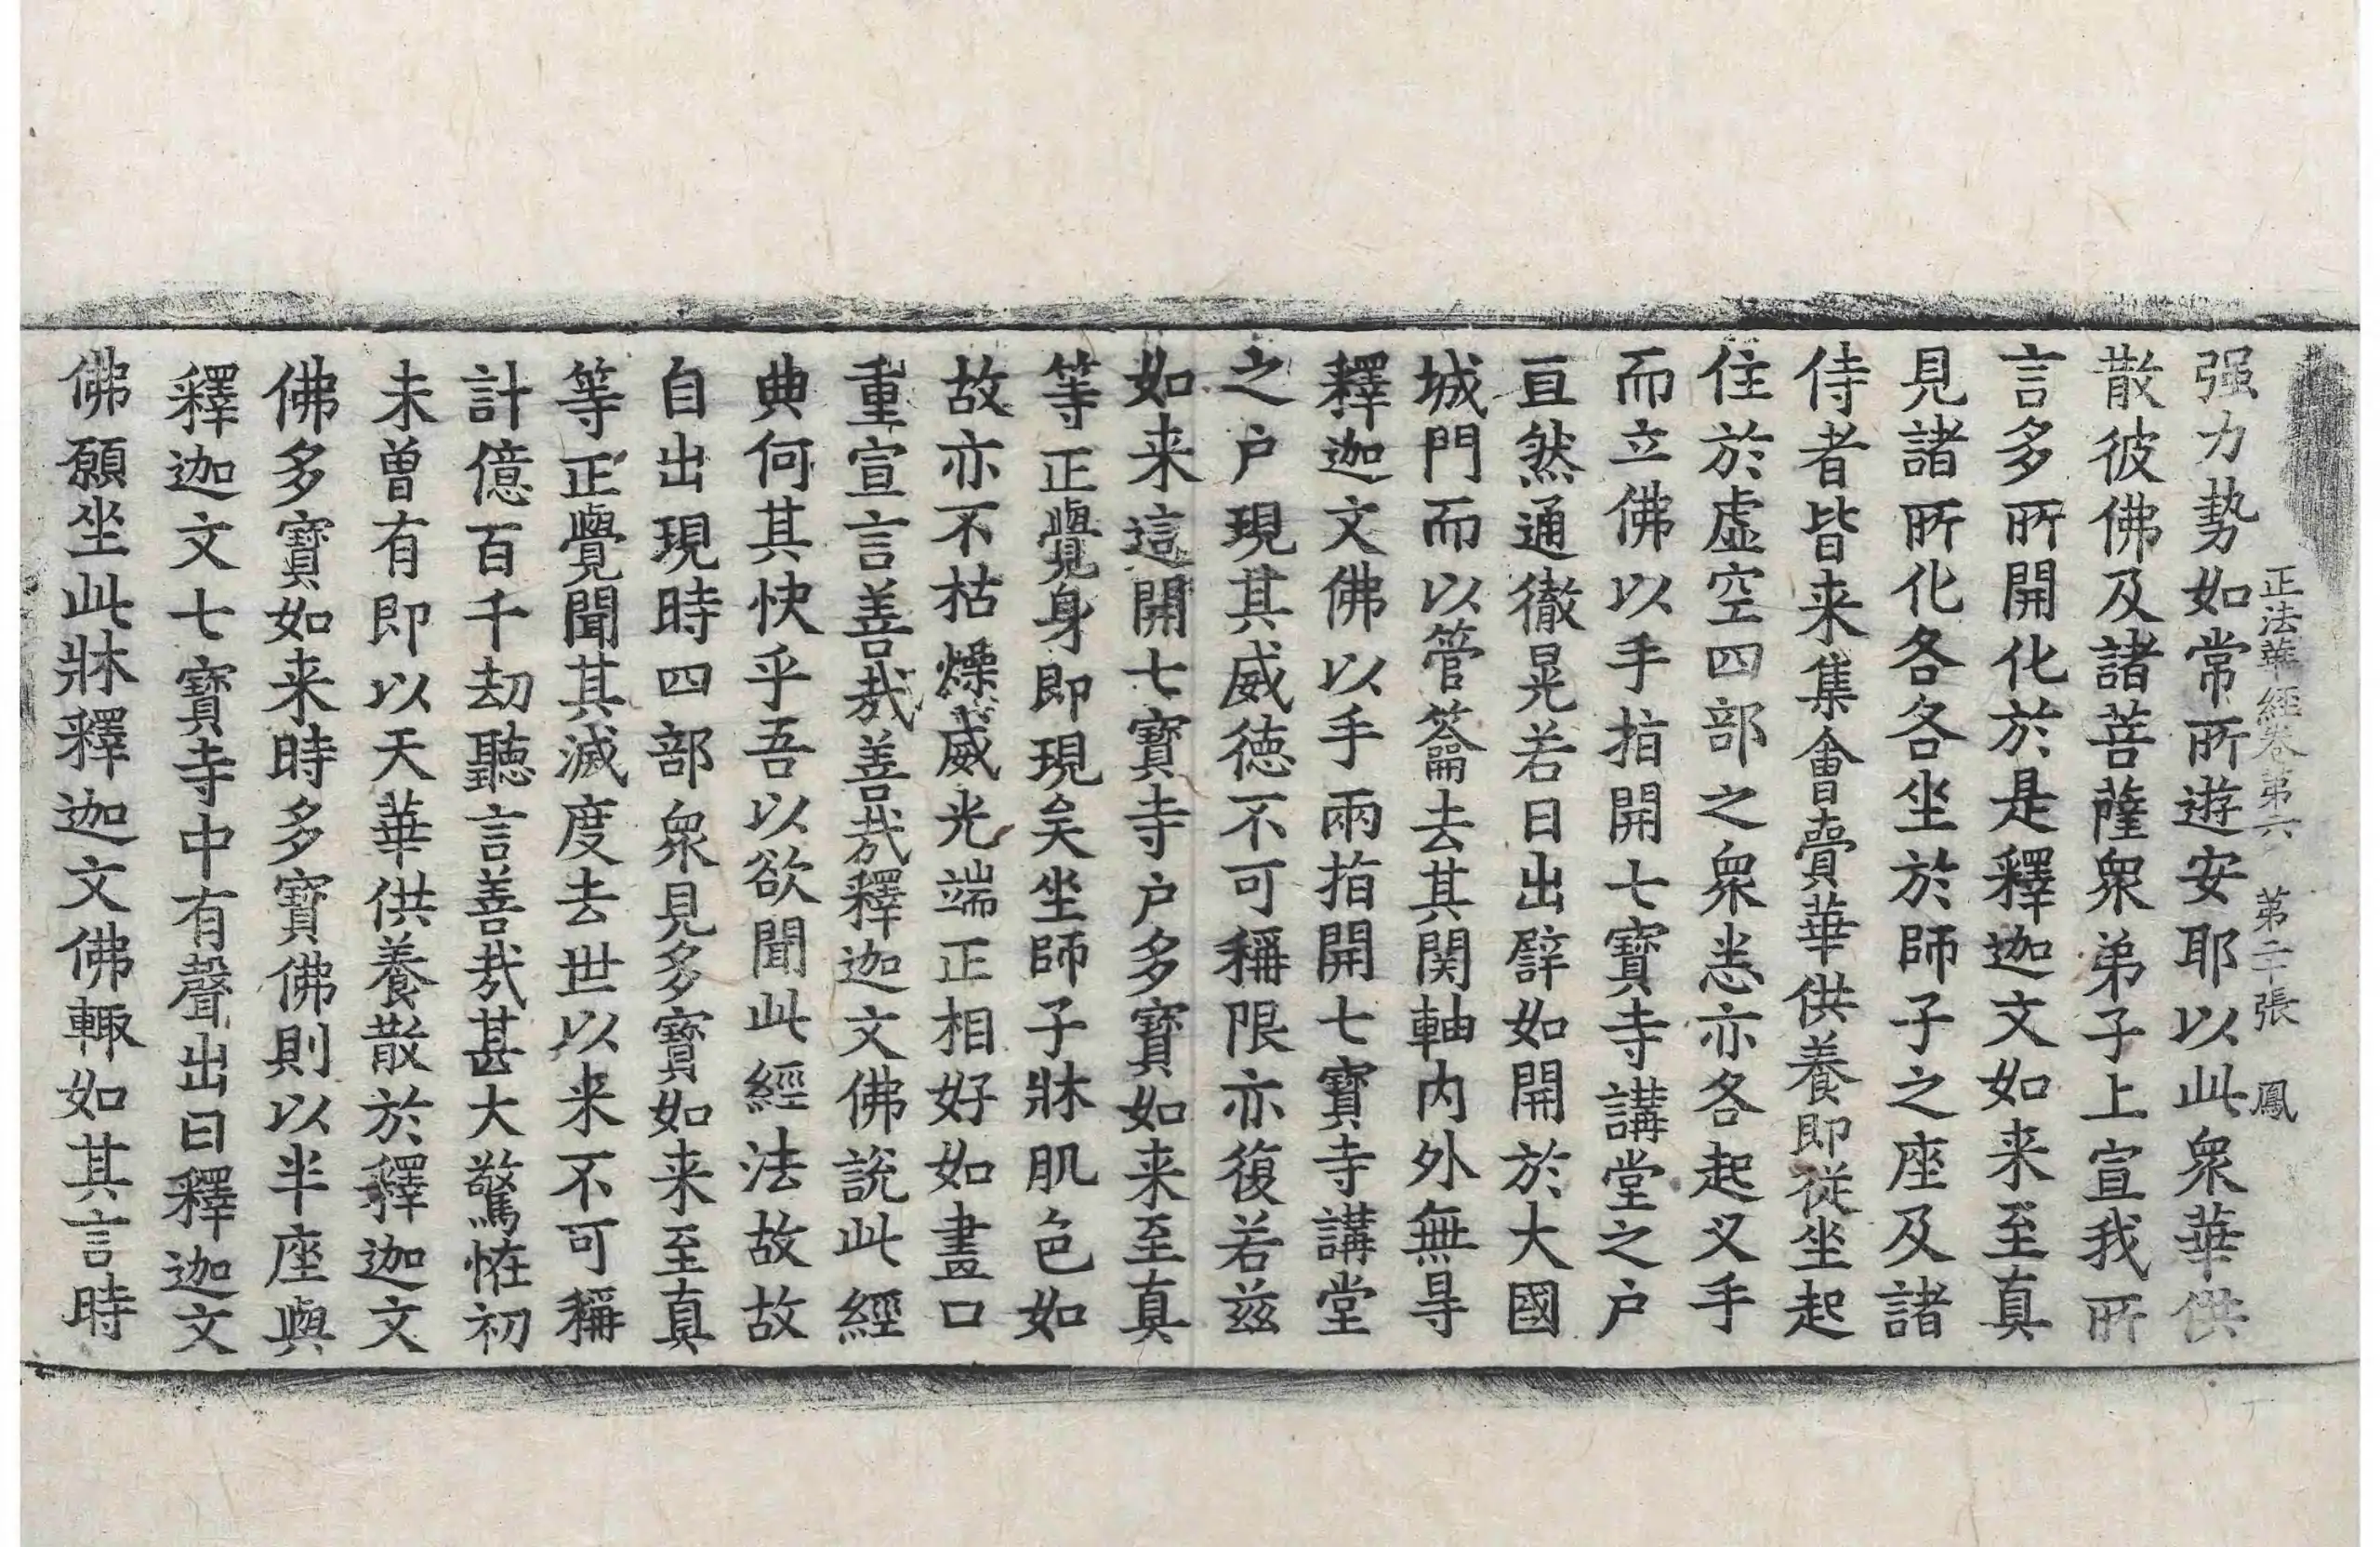 正法華經卷第六 第二十張 鳳
强力勢如常所遊安耶以此衆華供
散彼佛及諸菩薩衆弟子上宣我所
言多所開化於是釋迦文如来至真
見諸所化各各坐於師子之座及諸
侍者皆来集會賷華供養即從坐起
住於虚空四部之衆悉亦各起叉手
而立佛以手指開七寶寺講堂之户
亘然通徹晃若日出譬如開於大國
城門而以管籥去其関軸内外無㝵
釋迦文佛以手兩指開七寶寺講堂
之户現其威徳不可稱限亦復若兹
如来這開七寶寺户多寶如来至真
等正覺身即現矣坐師子牀肌色如
故亦不枯燥威光端正相好如畫口
重宣言善㢤善㢤釋迦文佛說此經
典何其快乎吾以欲聞此經法故故
自出現時四部衆見多寶如来至真
等正覺聞其滅度去世以来不可稱
計億百千劫聽言善㢤甚大驚恠初
未曽有即以天華供養散於釋迦文
佛多寶如来時多寶佛則以半座與
釋迦文七寶寺中有聲出曰釋迦文
佛願坐此牀釋迦文佛輙如其言時